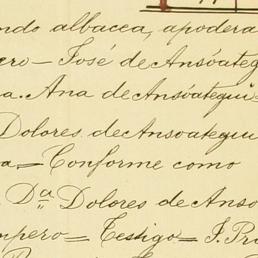 ndo albacea, apodera
ero = José de Ansóateg
a. Ana de Ansóategui =
Dolores de Ansoategui
a = Conforme como
Dª Dolores de Anso
mpero = Testigo = J. Pr